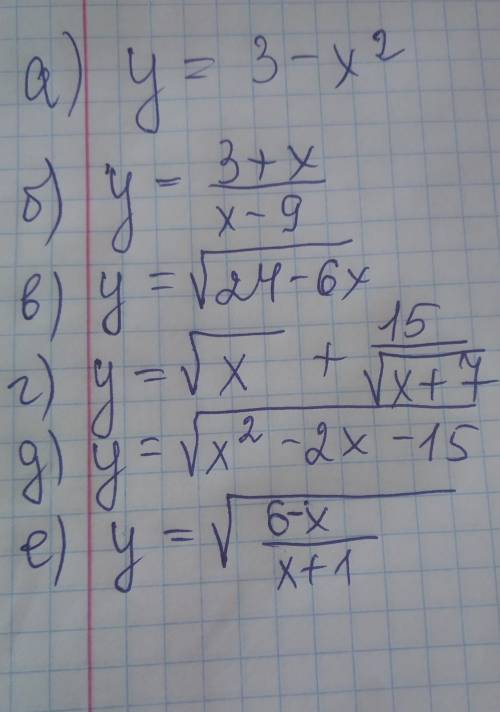 а) y = 3 - x²
б) y = (3 + x)/(x - 9)
в) y = √(24 - 6x)
г) y = √x + 15/√(x + 7)
д) y = √(x² - 2x - 15)
е) y = √((6 - x)/(x + 1))